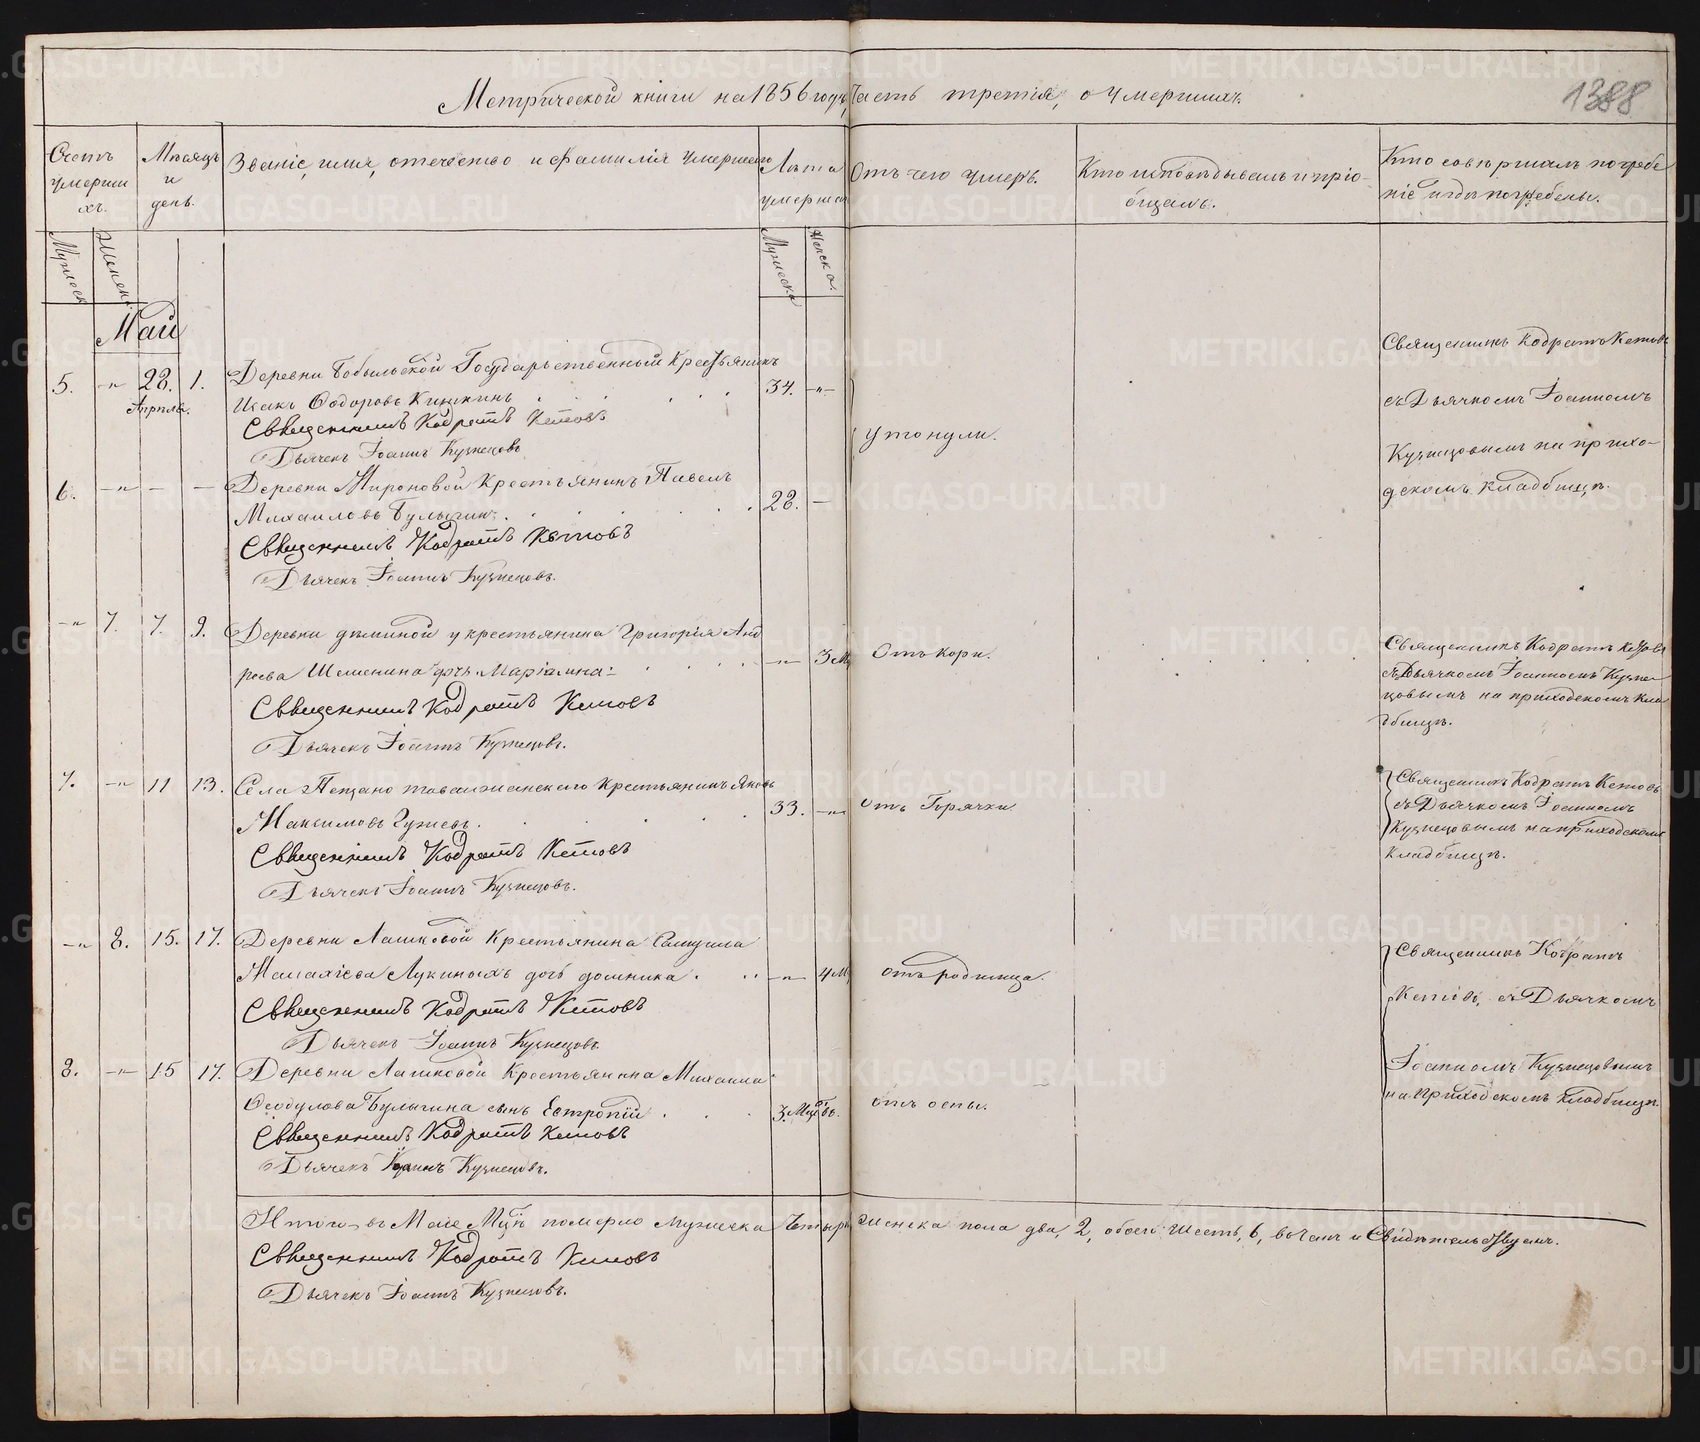 Метрической книги на 1856 годъ, Часть третія, о умершихъ.
1388
Счетъ умершихъ.
Мѣсяцъ и день.
Званіе, имя, отечество и фамилія умершаго
Лѣта умершаго
Отъ чего умеръ.
Кто исповѣдывалъ и пріобщалъ.
Кто совершалъ погребеніе и гдѣ погребены.
Май
5. -"- 28. 1. Деревни Бобыльской Государственный Крестьянинъ 34. -"-
Апрѣля. Исакъ Ѳедоровъ Кишкинъ
Священникъ Кодратъ Кетовъ
Дьячекъ Іоаннъ Кузнецовъ
утонули.
Священникъ Кодратъ Кетовъ
съ Дьячкомъ Іоанномъ
Кузнецовымъ на прихо-
дскомъ кладбищѣ.
6. -"- — — Деревни Мироновой Крестьянинъ Павелъ
Михаиловъ Булыгинъ 28. —
Священникъ Кодратъ Кетовъ
Дьячекъ Іоаннъ Кузнецовъ.
-"- 7. 7. 9. Деревни у крестьянина Григорія Анд
реева дочь -"- 3 М
Отъ кори.
Священникъ Кодратъ Кетовъ
Дьячекъ Іоаннъ Кузнецовъ.
Священникъ Кодратъ Кетовъ
съ Дьячкомъ Іоанномъ Кузне-
цовымъ на приходскомъ кла
дбищѣ.
7. -"- 11 13. Села Крестьянинъ Яковъ
Максимовъ Гужевъ. 33. -"-
отъ Горячки
Священникъ Кодратъ Кетовъ
Дьячекъ Іоаннъ Кузнецовъ.
Священникъ Кодратъ Кетовъ
съ Дьячкомъ Іоанномъ
Кузнецовымъ на приходскомъ
кладбищѣ.
-"- 8. 15. 17. Деревни Лашковой Крестьянина Самуила
Малахіева Лукиныхъ дочь домника. -"- 4 М
отъ родимца.
Священникъ Кодратъ Кетовъ
Дьячекъ Іоаннъ Кузнецовъ
Священникъ Кодратъ
Кетовъ, съ Дьячкомъ
Іоанномъ Кузнецовымъ
на приходскомъ кладбищѣ.
8. -"- 15 17. Деревни Лашковой Крестьянина Михаила
Ѳеодулова Булыгина сынъ Евтропій
отъ оспы.
Священникъ Кодратъ Кетовъ
Дьячекъ Іоаннъ Кузнецовъ.
Итого въ Маіе Мцѣ померло мужеска четыре женска пола два, 2, обоего шесть, 6,
Священникъ Кодратъ Кетовъ
Дьячекъ Іоаннъ Кузнецовъ.
METRIKI.GASO-URAL.RU